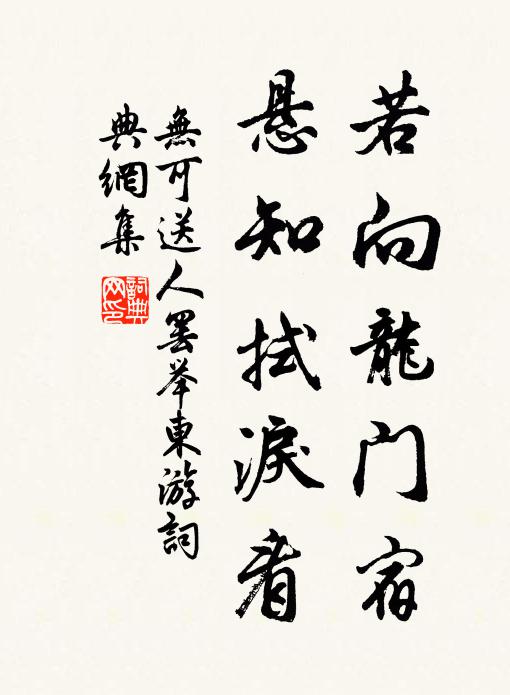 若向龍门宿
悬知拭淚看
無可送人罢举東游詞
典網集
詞典
网印